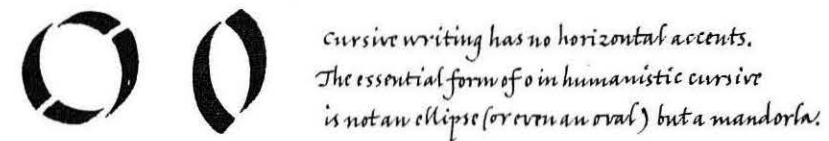 Cursive writing has no horizontal accents.
The essential form of o in humanistic cursive
is not an ellipse (or even an oval) but a mandorla.